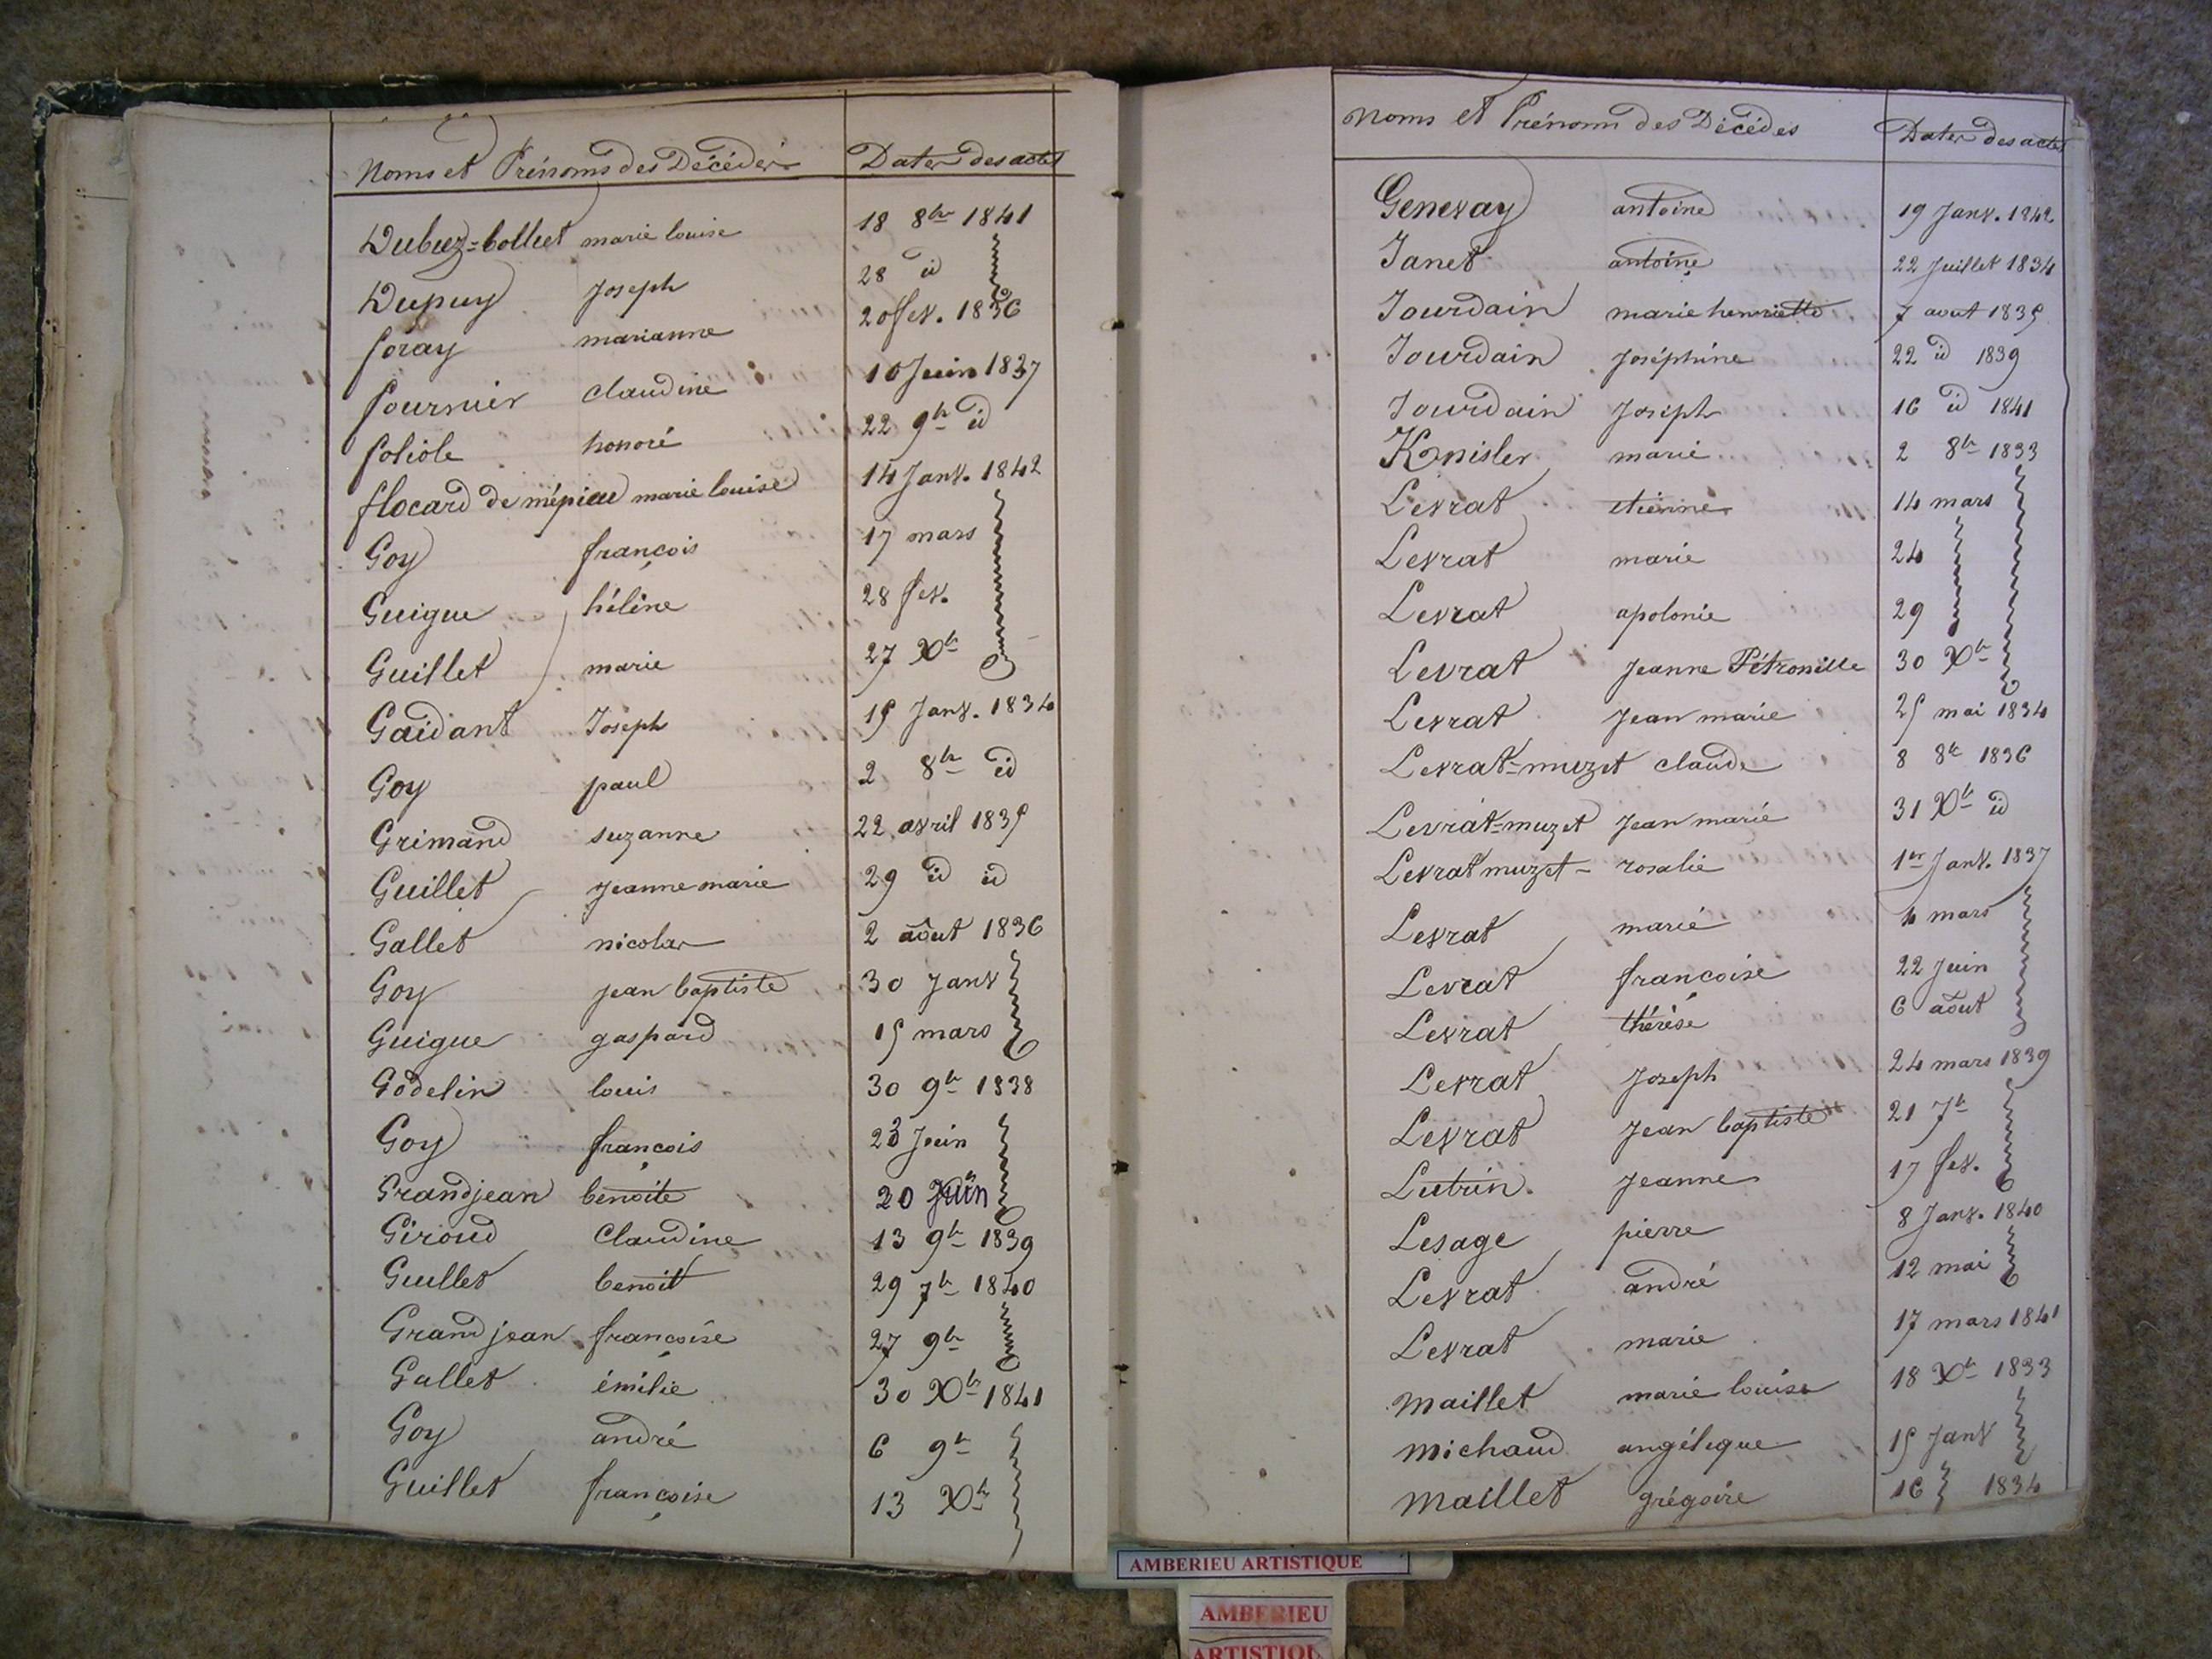 Noms et Prénoms des Décédés Dates des actes
Dubuz=bollet marie louise 18 8bre 1841
Dupuy Joseph 28 id
foray marianne 20 fev. 1836
fournier claudine 10 Juin 1837
foliole honoré 22 9br id
flocard de mépieu marie louise 14 Janv. 1842
Goy françois 17 mars
Guigue hélène 28 fev.
Guillet marie 27 Xbr
Gaidant Joseph 15 Janv. 1834
Goy paul 2 8br id
Grimand suzanne 22 avril 1835
Guillet Jeanne marie 29 id id
Gallet nicolas 2 aout 1836
Goy jean baptiste 30 Janv
Guigue gaspard 15 mars
Godelin louis 30 9br 1838
Goy françois 23 Juin
Grandjean benoite 20 Juin
Giroud Claudine 13 9br 1839
Guillet benoit 29 7br 1840
Grandjean françoise 27 9br
Gallet émilie 30 Xbr 1841
Goy andré 6 9br
Guillet françoise 13 Xbr
Noms et Prénoms des Décédés Dates des actes
Genevay antoine 19 Janv. 1842
Janet antoine 22 Juillet 1834
Jourdain marie henriette 7 aout 1835
Jourdain Joséphine 22 id 1839
Jourdain Joseph 16 id 1841
Knisler marie 2 8br 1833
Levrat etienne 14 mars
Levrat marie 24
Levrat apolonie 29
Levrat Jeanne Pétronille 30 Xbr
Levrat Jean marie 25 mai 1834
Levrat=muzet claude 8 8br 1836
Levrat=muzet Jean marie 31 Xbr id
Levrat muzet - rosalie 1er Janv. 1837
Levrat marie 4 mars
Levrat francoise 22 Juin
Levrat thérèse 6 aout
Levrat Joseph 24 mars 1839
Levrat Jean baptiste 21 7br
Lutrin. Jeanne 17 fev.
Lesage pierre 8 Janv. 1840
Levrat andré 12 mai
Levrat marie 17 mars 1841
Maillet marie louise 18 Xbr 1833
Michaud angélique 15 Janv
Maillet grégoire 16 1834
AMBERIEU ARTISTIQUE
AMBERIEU
ARTISTIQU